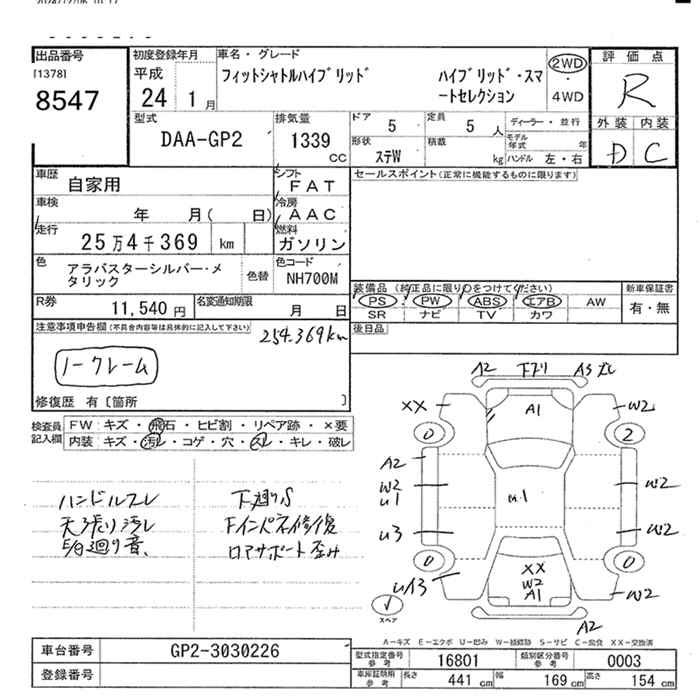 出品番号 初度登録年月 車名・グレード 評価点
[1378] 平成 フィットシャトルハイブリッド ハイブリッド・スマートセレクション 2WD R
8547 24 1月 4WD
型式 排気量 ドア 定員 ディーラー・並行 外装 内装
DAA-GP2 1339 CC 5 5人 モデル年式 年 D C
形状 積載 ステW kg ハンドル 左・右
車歴 自家用 シフト FAT セールスポイント(正常に機能するものに限ります)
車検 年 月( 日) 冷房 AAC
走行 25万4千369 km 燃料 ガソリン
色 アラバスターシルバー・メタリック 色替 色コード NH700M
装備品(純正品に限り○をつけてください) 新車保証書
PS PW ABS エアB AW 有・無
SR ナビ TV カワ
R券 11,540円 名変通知期限 月 日
後日品
注意事項申告欄(不具合内容等は具体的に記入して下さい) 254.369km
ノークレーム
修復歴 有[箇所 ]
検査員記入欄 FW:キズ・飛石・ヒビ割・リペア跡・×要
内装:キズ・汚レ・コゲ・穴・スレ・キレ・破レ
ハンドルスレ 下廻りS
天張り汚レ Fインパネ修復
E/G廻り音、 ロアサポート歪み
A2 下ブリ A3
XX A1 W2
0 2
A2
W2 W2
U1 U1
U3 W2
0 0
XX
W2
A1
U13 W2
スペア A2
A-キズ E-エクボ U-凹み W-補修跡 S-サビ C-腐食 XX-交換済
車台番号 GP2-3030226
登録番号
型式指定番号 参考 16801 類別区分番号 参考 0003
車庫証明用 参考 長さ 441 cm 幅 169 cm 高さ 154 cm